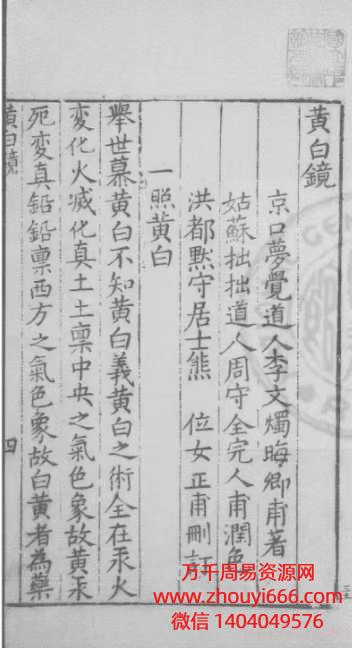 黃白鏡
京口夢覺道人李文燭晦卿甫著
姑蘇拙拙道人周守全完人甫潤色
洪都黙守居士熊 位女正甫刪訂
一照黃白
舉世慕黃白不知黃白義黃白之術全在汞火
变化火滅化真土土禀中央之氣色象故黃汞
死变真鉛鉛禀西方之氣色象故白黃者為藥
黃白鏡
四
万千周易资源网
www.zhouyi666.com
微信 1404049576